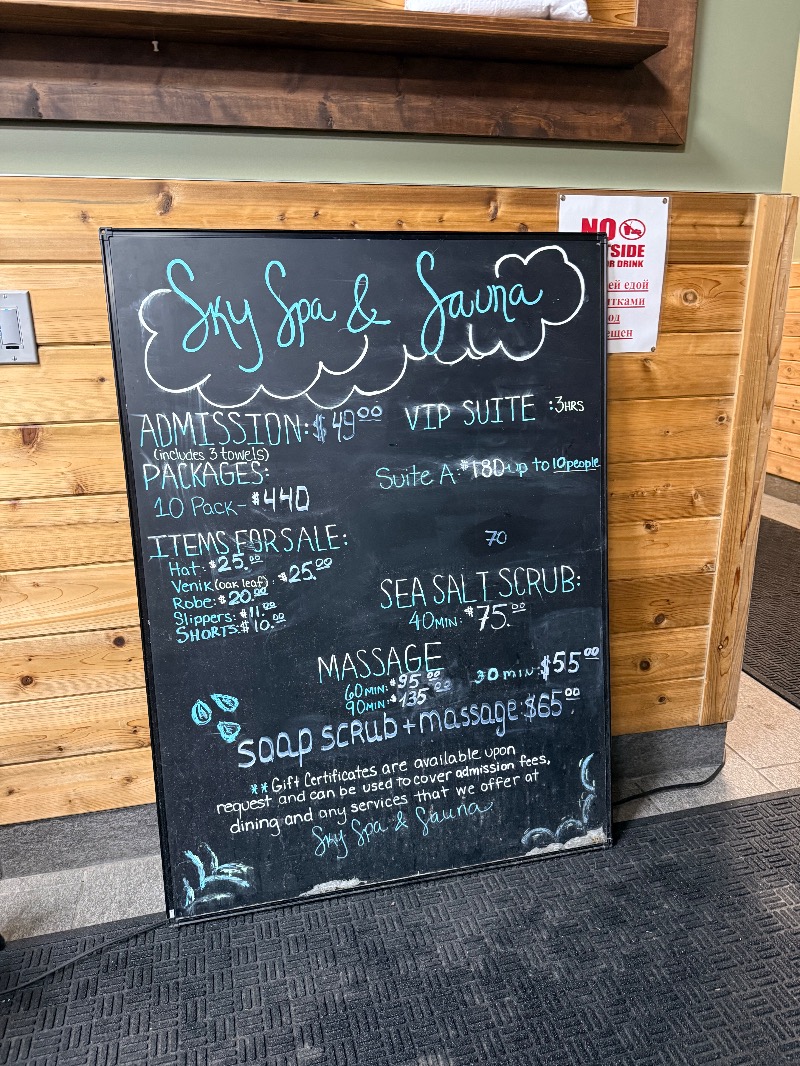 Sky Spa & Sauna
ADMISSION: $49.00
(includes 3 towels)
VIP SUITE :3HRS
PACKAGES:
10 Pack- $440
Suite A: $180 up to 10 people
70
ITEMS FOR SALE:
Hat: $25.00
Venik (oak leaf): $25.00
Robe: $20.00
Slippers: $11.00
SHORTS: $10.00
SEA SALT SCRUB:
40MIN: $75.00
MASSAGE
60MIN: $95.00
90MIN: $135.00
30 min: $55.00
soap scrub + massage $65.00
**Gift Certificates are available upon
request and can be used to cover admission fees,
dining and any services that we offer at
Sky Spa & Sauna
NO
SIDE
DRINK
ей едой
тками
од
ешен